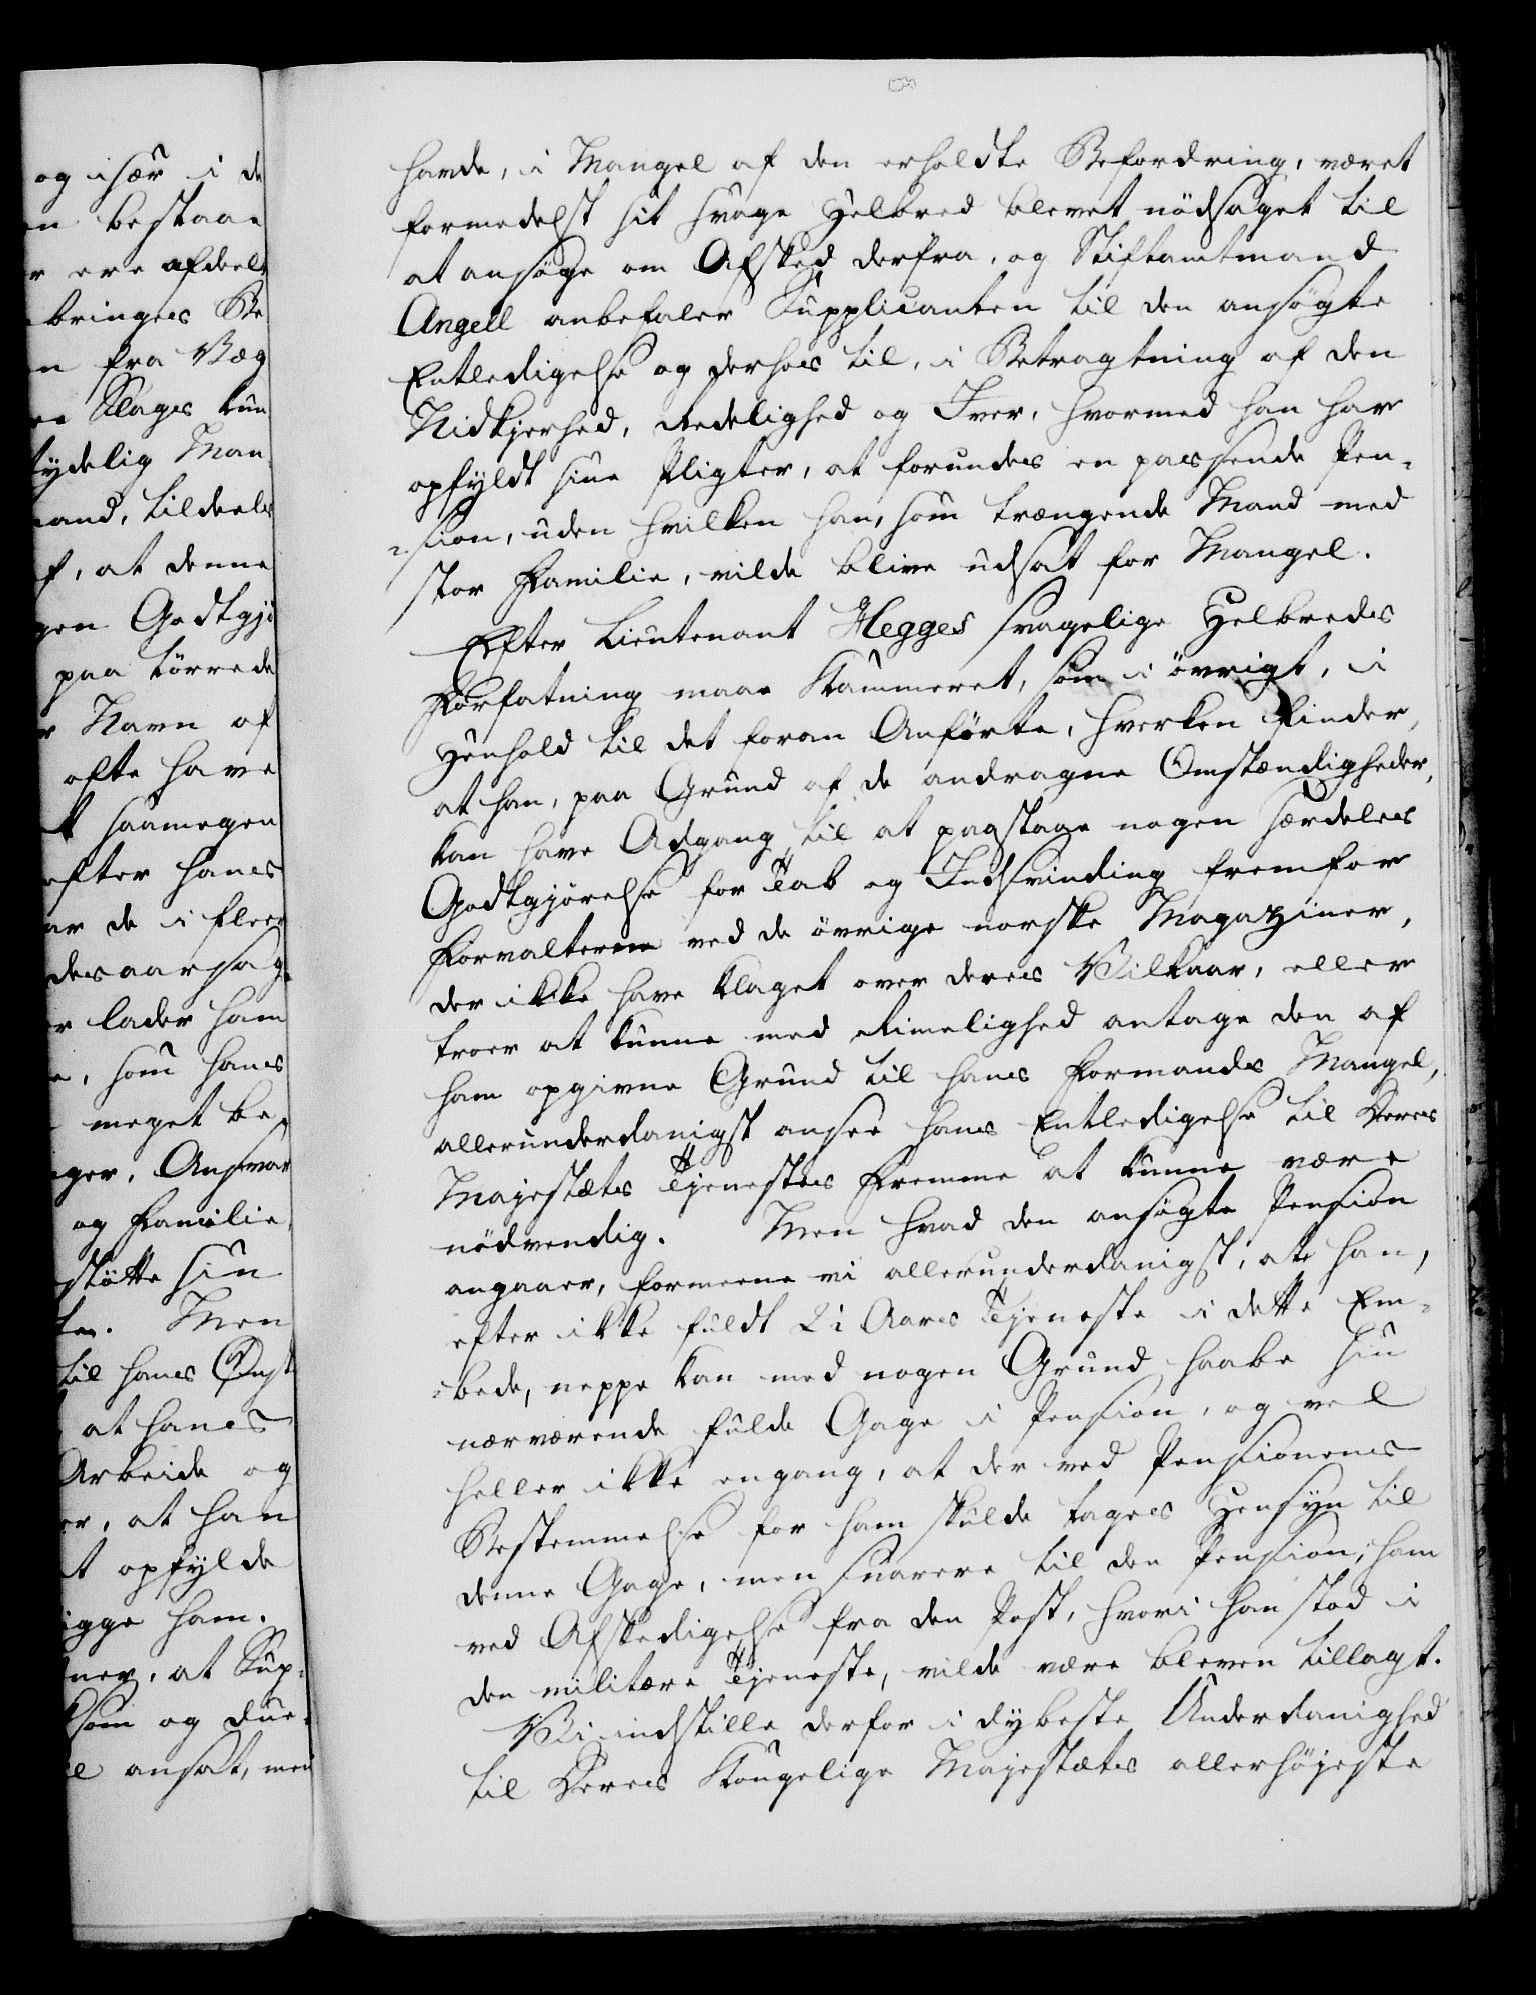 og især i de
n bestaae
r ere afdeel
bringes Be
n fra Væg
Slages kun
tydelig Man
mand, tildeels
f, at denne
gen Godtgjö
paa törrede
r Navn af
ofte have
t saamegen
efter hans
ar de i fleer
desaarsag
r lader ham
e, som hans
meget be,
ger, Ansvar
og Familie
stötte sin
ten. Men
til hans Önsk
at hans
Arbeide og
er, at han
t opfylde
igge ham.
ner, at Sup-
som og due-
l ansat, men
havde, i Mangel af den erholdte Befordring, været
formedelst sit svage Helbred blevet nödsaget til
at ansöge om Afsked derfra, og Stiftamtmand
Angell anbefaler Supplicanten til den ansögte
Entledigelse og derhos til, i Betragtning af den
Nidkjerhed, Redelighed og Iver, hvormed han har
opfyldt sine Pligter, at forundes en passende Pen-
-sion, uden hvilken han, som trængende Mand med
stor Familie, vilde blive udsat for Mangel.
Efter Lieutenant Hegges svagelige Helbreds
Forfatning maae Kammeret, som i övrigt, i
Henhold til det foran Anförte, hverken finder,
at han, paa Grund af de andragne Omstændigheder,
kan have Adgang til at paastaae nogen særdeles
Godtgjörelse for Tab og Indsvinding fremfor
Forvalterne ved de övrige norske Magaziner,
der ikke have klaget over deres Vilkaar, eller
troer at kunne med Rimelighed antage den af
ham opgivne Grund til hans Formands Mangel,
allerunderdanigst ansee hans Entledigelse til Deres
Majestæts Tjenestes Fremme at kunne være
nödvendig. Men hvad den ansögte Pension
angaaer, formene vi allerunderdanigst, at han,
efter ikke fuldt 21 Aars Tjeneste i dette Em-
-bede, neppe kan med nogen Grund haabe sin
nærværende fulde Gage i Pension, og vel
heller ikke engang, at der ved Pensionens
Bestemmelse for ham skulde tages Hensyn til
denne Gage, men snarere til den Pension, ham
ved Afskedigelse fra den Post, hvori han stod i
den militære Tjeneste, vilde være bleven tillagt.
Vi indstille derfor i dybeste Underdanighed
til Deres Kongelige Majestæts allerhöjeste